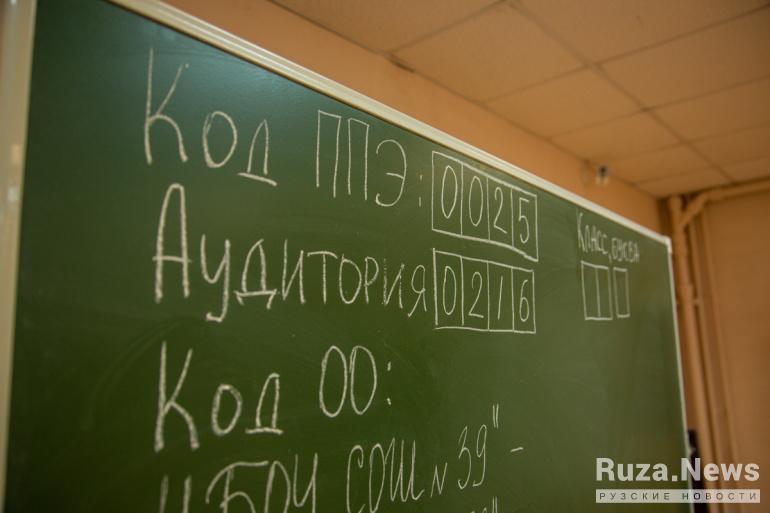 Код ППЭ: 0025
Аудитория 0216
Класс, буква
Код ОО:
СОШ N 39" -
Ruza.News
РУЗСКИЕ НОВОСТИ